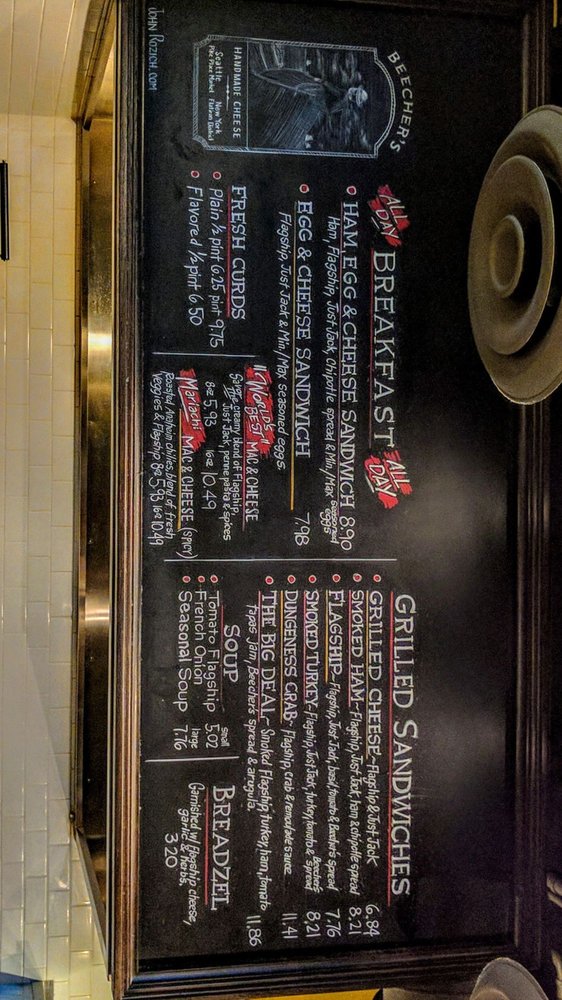 BEECHER'S
HANDMADE CHEESE
Seattle New York
Pike Place Market Flatiron District
JOHN ROZICH.COM
ALL DAY BREAKFAST ALL DAY
HAM EGG & CHEESE SANDWICH 8.90
Ham, Flagship, Just Jack, Chipotle spread & Min/Max seasoned eggs
EGG & CHEESE SANDWICH 7.98
Flagship, Just Jack & Min/Max seasoned eggs.
FRESH CURDS
Plain ½ pint 6.25 pint 9.75
Flavored ½ pint 6.50
"WORLD'S BEST" MAC & CHEESE
creamy blend of Flagship,
Just Jack, penne pasta & spices
8oz 5.93 16oz 10.49
Mariachi MAC & CHEESE (SPICY)
Roasted Anaheim chilies, blend of fresh
veggies & Flagship 8oz 5.93 16oz 10.49
GRILLED SANDWICHES
GRILLED CHEESE~Flagship & Just Jack 6.84
SMOKED HAM~Flagship, Just Jack, ham & chipotle spread 8.21
FLAGSHIP~Flagship, Just Jack, basil, tomato & Beecher's spread 7.76
SMOKED TURKEY~Flagship, Just Jack, turkey, tomato & Beecher's spread 8.21
DUNGENESS CRAB~Flagship, crab & remoulade sauce 11.41
THE BIG DEAL~Smoked Flagship, turkey, ham, tomato 11.86
tapas jam, Beecher's spread & arugula.
SOUP
Tomato Flagship small 5.02
French Onion
Seasonal Soup large 7.76
BREADZEL
Garnished w/ Flagship cheese,
garlic & herbs,
3.20